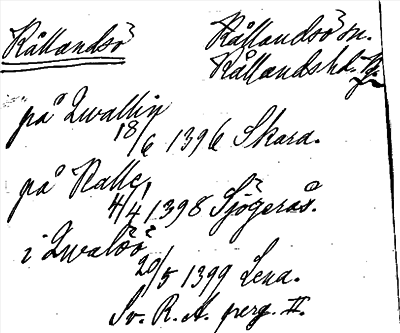 Kållandsö Kållandsö sn.
Kållands hd. Vg.
på Qwallin
18/6 1396 Skara.
på Kalle
4/4 1398 Sjögerås.
i Qwalöö
20/5 1399 Lena.
Sv. R. A. perg. II.